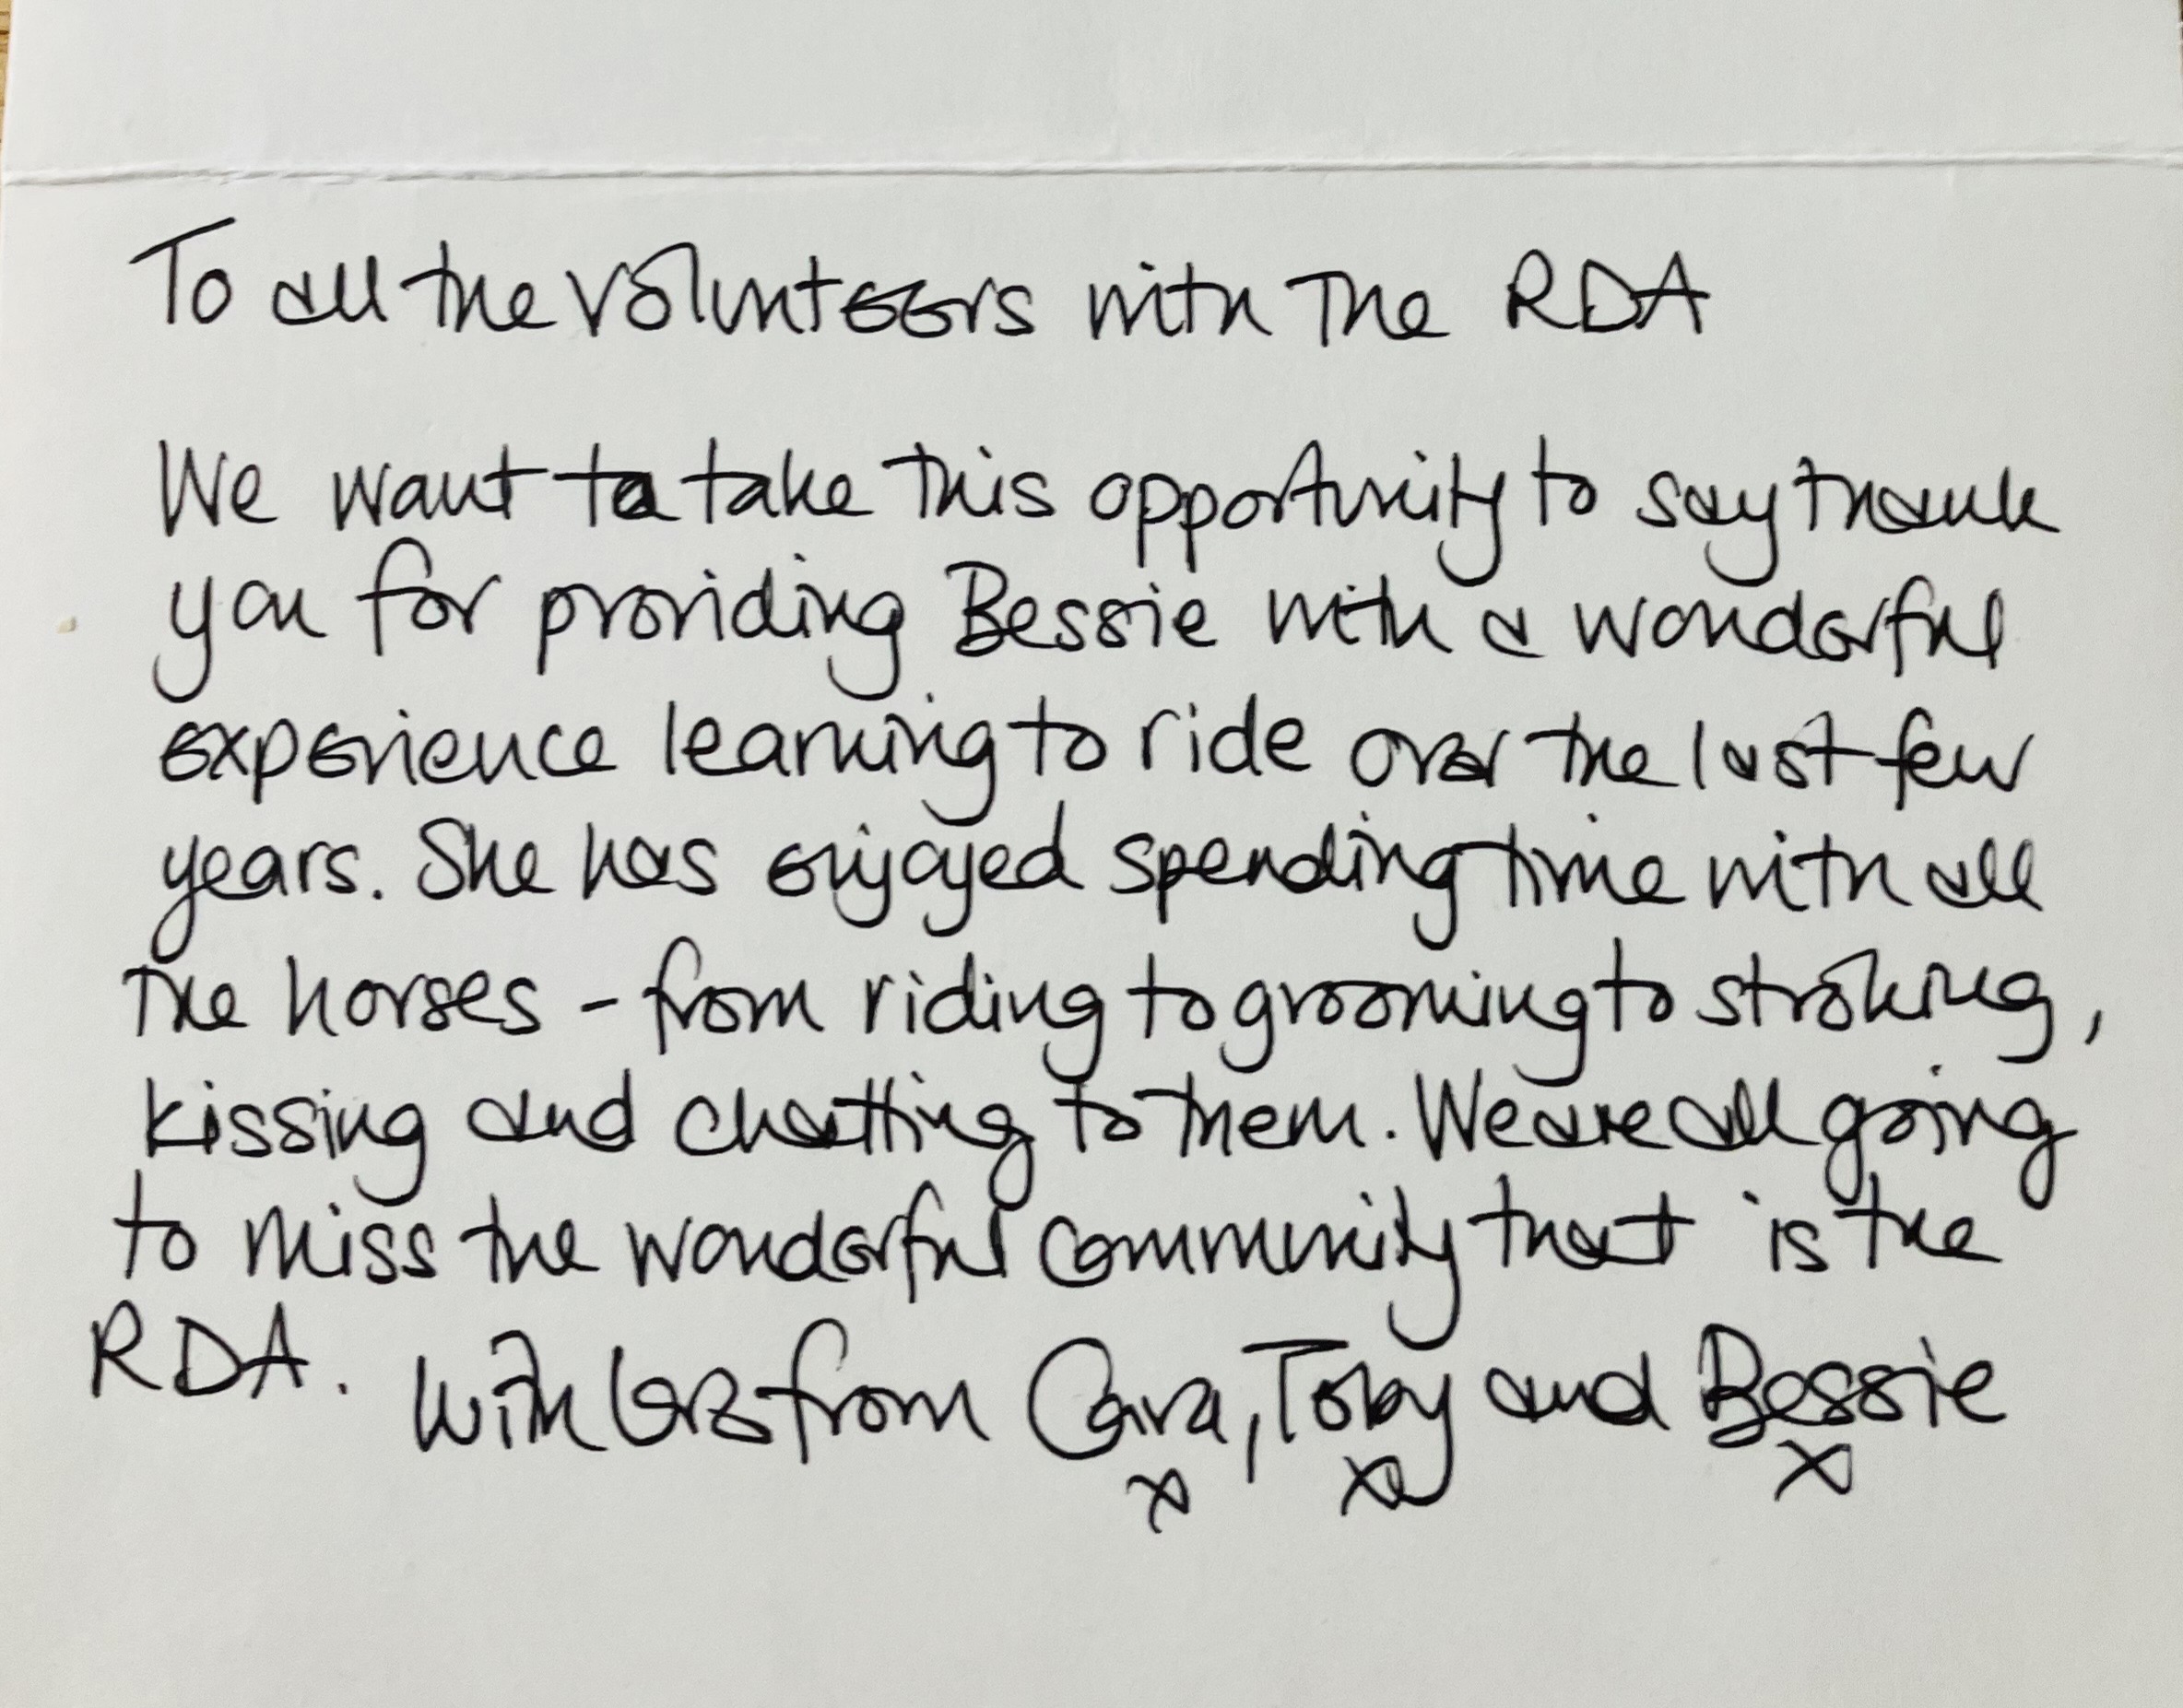 To all the volunteers with the RDA
We want to take this opportunity to say thank
you for providing Bessie with a wonderful
experience learning to ride over the last few
years. She has enjoyed spending time with all
the horses - from riding to grooming to stroking,
kissing and chatting to them. We are all going
to miss the wonderful community that is the
RDA. With love from Ciara, Toby and Bessie
x x x